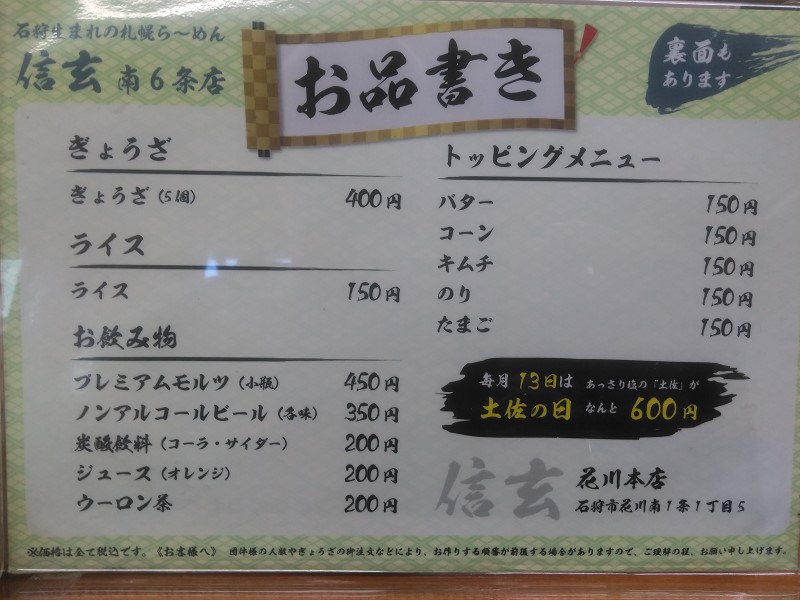 石狩生まれの札幌ら～めん
信玄 南6条店
お品書き
裏面も
あります
ぎょうざ
ぎょうざ(5個) 400円
ライス
ライス 150円
お飲み物
プレミアムモルツ(小瓶) 450円
ノンアルコールビール(各味) 350円
炭酸飲料(コーラ・サイダー) 200円
ジュース(オレンジ) 200円
ウーロン茶 200円
トッピングメニュー
バター 150円
コーン 150円
キムチ 150円
のり 150円
たまご 150円
毎月13日は あっさり塩の「土佐」が
土佐の日 なんと 600円
信玄 花川本店
石狩市花川南1条1丁目5
※価格は全て税込です。《お客様へ》 団体様の人数やぎょうざの御注文などにより、お作りする順番が前後する場合がありますので、ご理解の程、お願い申し上げます。